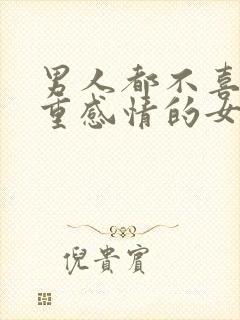 男人都不喜
重感情的女
倪貴賓